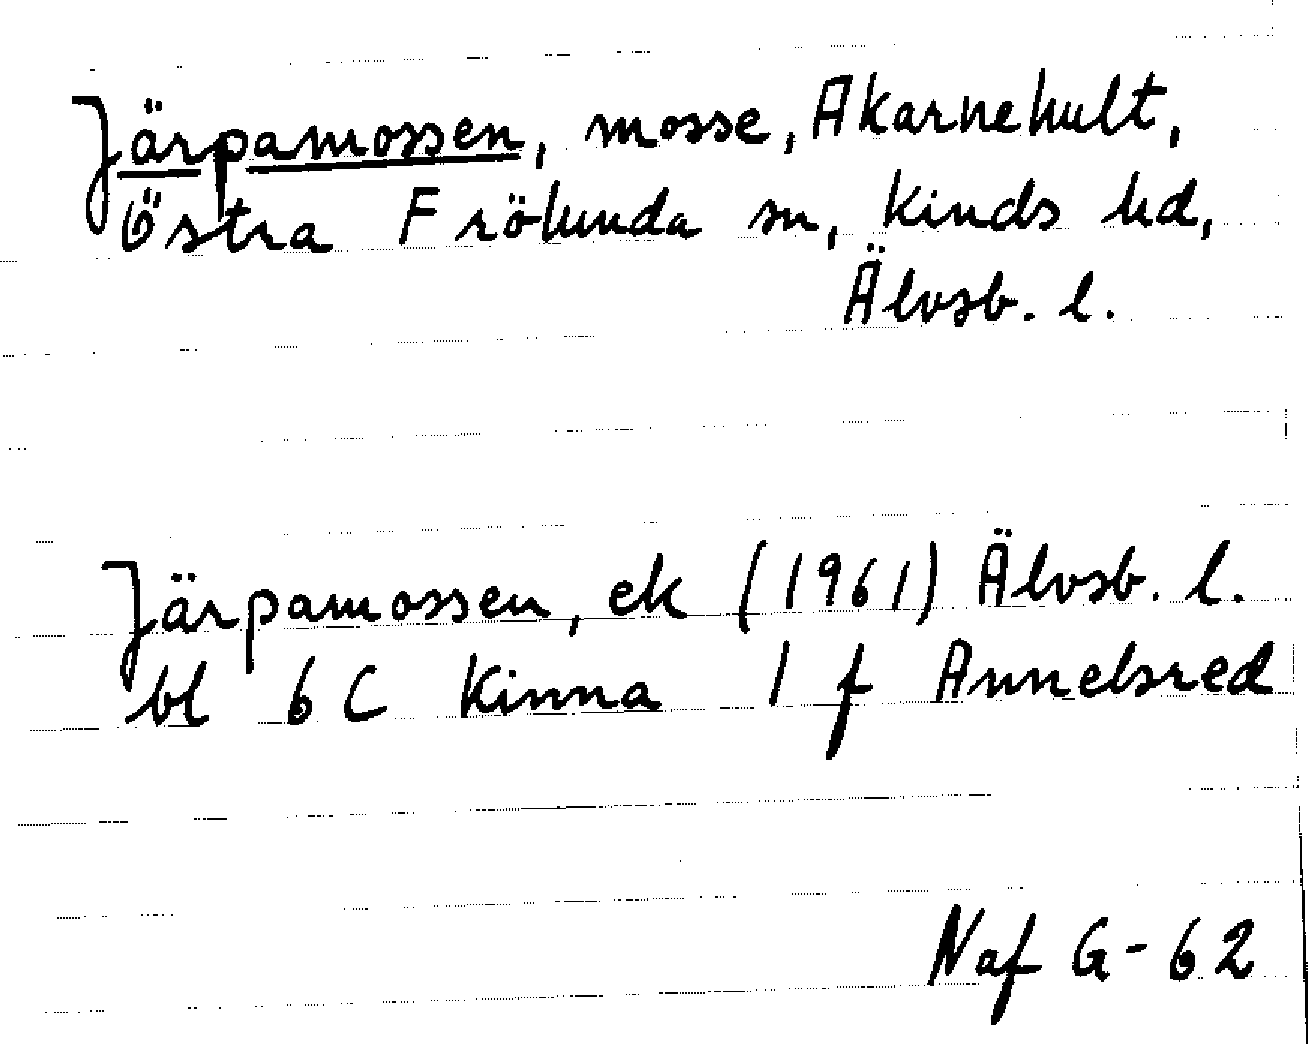 Järpamossen, mosse, Akarnehult,
Östra Frölunda sn, Kinds hd,
Älvsb. l.
Järpamossen, ek (1961) Älvsb. l.
bl 6 C Kinna 1 f Annelsred
Naf G-62